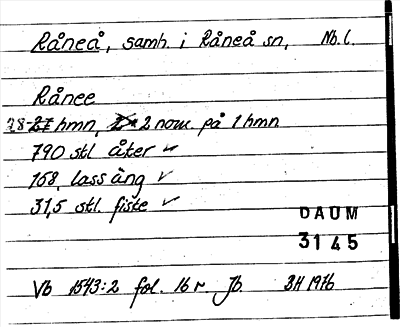 Råneå, samh. i Råneå sn, Nb.l.
Rånee
28 hmn, 2 nom. på 1 hmn
790 stl åker ✓
168, lass äng ✓
31,5 stl. fiske ✓
DAUM
3145
Vb 1543:2 fol. 16 r. Jb. BH 1976